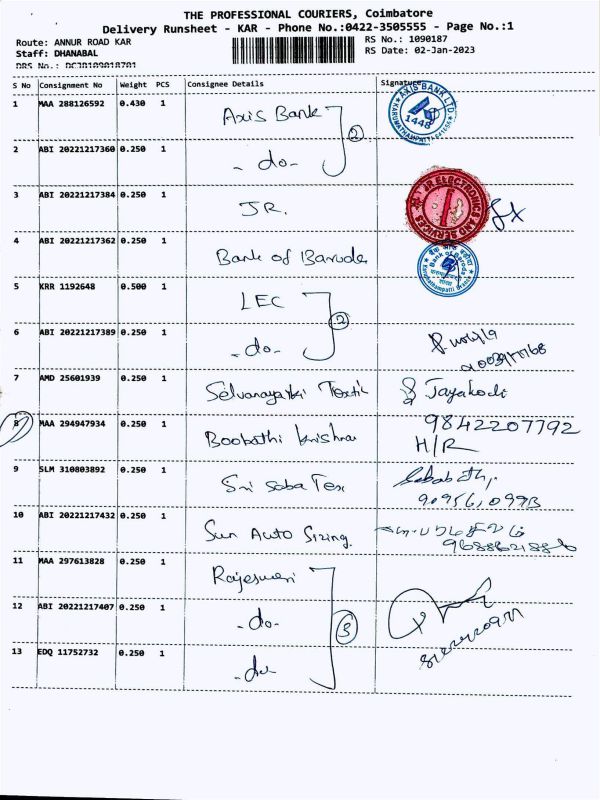 THE PROFESSIONAL COURIERS, Coimbatore
Delivery Runsheet - KAR - Phone No.:0422-3505555 - Page No.:1
Route: ANNUR ROAD KAR
Staff: DHANABAL
DRS No.:
RS No.: 1090187
RS Date: 02-Jan-2023
S No Consignment No Weight PCS Consignee Details Signature
1 MAA 288126592 0.430 1 Axis Bank 2 AXIS BANK LTD. 1448
2 ABI 20221217360 0.250 1 -do-
3 ABI 20221217384 0.250 1 JR. JR ELECTRONICS AND SERVICES
4 ABI 20221217362 0.250 1 Bank of Baroda Bank of Baroda
5 KRR 1192648 0.500 1 LEC 2
6 ABI 20221217389 0.250 1 -do-
7 AMD 25601939 0.250 1 Selvanayaki Textil Jayakodi
8 MAA 294947934 0.250 1 Boobathi krishna 9842207792
H/R
9 SLM 310803892 0.250 1 Sri Saba Tex
10 ABI 20221217432 0.250 1 Sun Auto Sizing.
11 MAA 297613828 0.250 1 Rajeswari 3
12 ABI 20221217407 0.250 1 -do-
13 EDQ 11752732 0.250 1 -do-